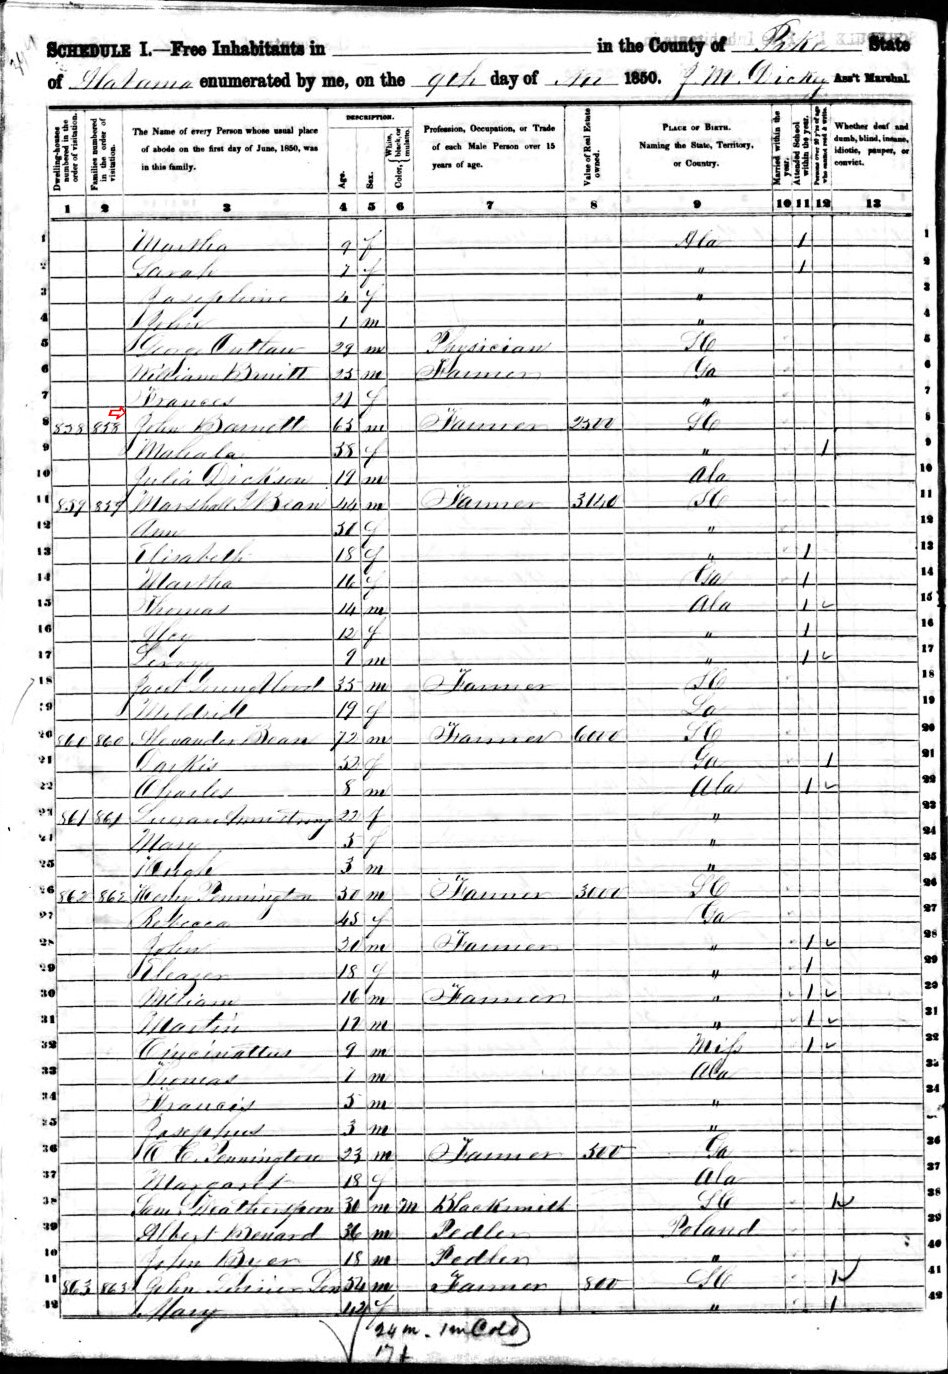 SCHEDULE I.—Free Inhabitants in in the County of Pike State
of Alabama enumerated by me, on the 9th day of 1850. J. M. Dicky Ass't Marshal.
Dwelling-houses numbered in the order of visitation.
Families numbered in the order of visitation.
The Name of every Person whose usual place of abode on the first day of June, 1850, was in this family.
DESCRIPTION.
Age.
Sex.
Color, { White, black, or mulatto.
Profession, Occupation, or Trade of each Male Person over 15 years of age.
Value of Real Estate owned.
PLACE OF BIRTH. Naming the State, Territory, or Country.
Married within the year.
Attended School within the year.
Persons over 20 y'rs of age who cannot read & write.
Whether deaf and dumb, blind, insane, idiotic, pauper, or convict.
1 2 3 4 5 6 7 8 9 10 11 12 13
1 Martha 9 f Ala 1 1
2 Sarah 7 f " 1 2
3 Josephine 4 f " 3
4 John 1 m " 4
5 George Outlaw 29 m Physician SC 5
6 William 25 m Farmer Ga 6
7 Frances 21 f " 7
8 858 858 John Barnett 65 m Farmer 2500 SC 8
9 Mahala 58 f " 1 9
10 Julia Dickson 19 m Ala 10
11 859 859 Marshall Bean 44 m Farmer SC 11
12 Ann 30 f " 12
13 Elisabeth 18 f " 1 13
14 Martha 16 f Ga 1 14
15 Thomas 14 m Ala 1 15
16 12 f " 1 16
17 Leroy 9 m " 1 17
18 35 m Farmer SC 18
19 19 f 19
20 860 860 Alexander Bean 72 m Farmer 6000 SC 20
21 Darkis 52 f Ga 1 21
22 Charles 8 m Ala 1 22
23 861 861 Armstrong 22 f " 23
24 Mary 5 f " 24
25 Hugh 3 m " 25
26 862 862 Pennington 50 m Farmer 3000 SC 26
27 Rebecca 45 f Ga 27
28 John m Farmer " 1 28
29 18 f " 1 29
30 William 16 m Farmer " 1 30
31 Martin 12 m " 1 31
32 Cincinattus 9 m Miss 1 32
33 Thomas 7 m Ala 33
34 Francis 5 m " 34
35 Josephus 3 m " 35
36 Pennington 23 m Farmer 500 Ga 36
37 Margaret 18 f Ala 37
38 Sam Weatherspoon 30 m M Blacksmith SC 1 38
39 Albert 36 m Pedler Poland 39
40 John Byer 18 m Pedler " 40
41 863 863 John 54 m Farmer 800 SC 1 41
42 Mary 42 f " 1 42
24 m. 1 m Cold
17 f